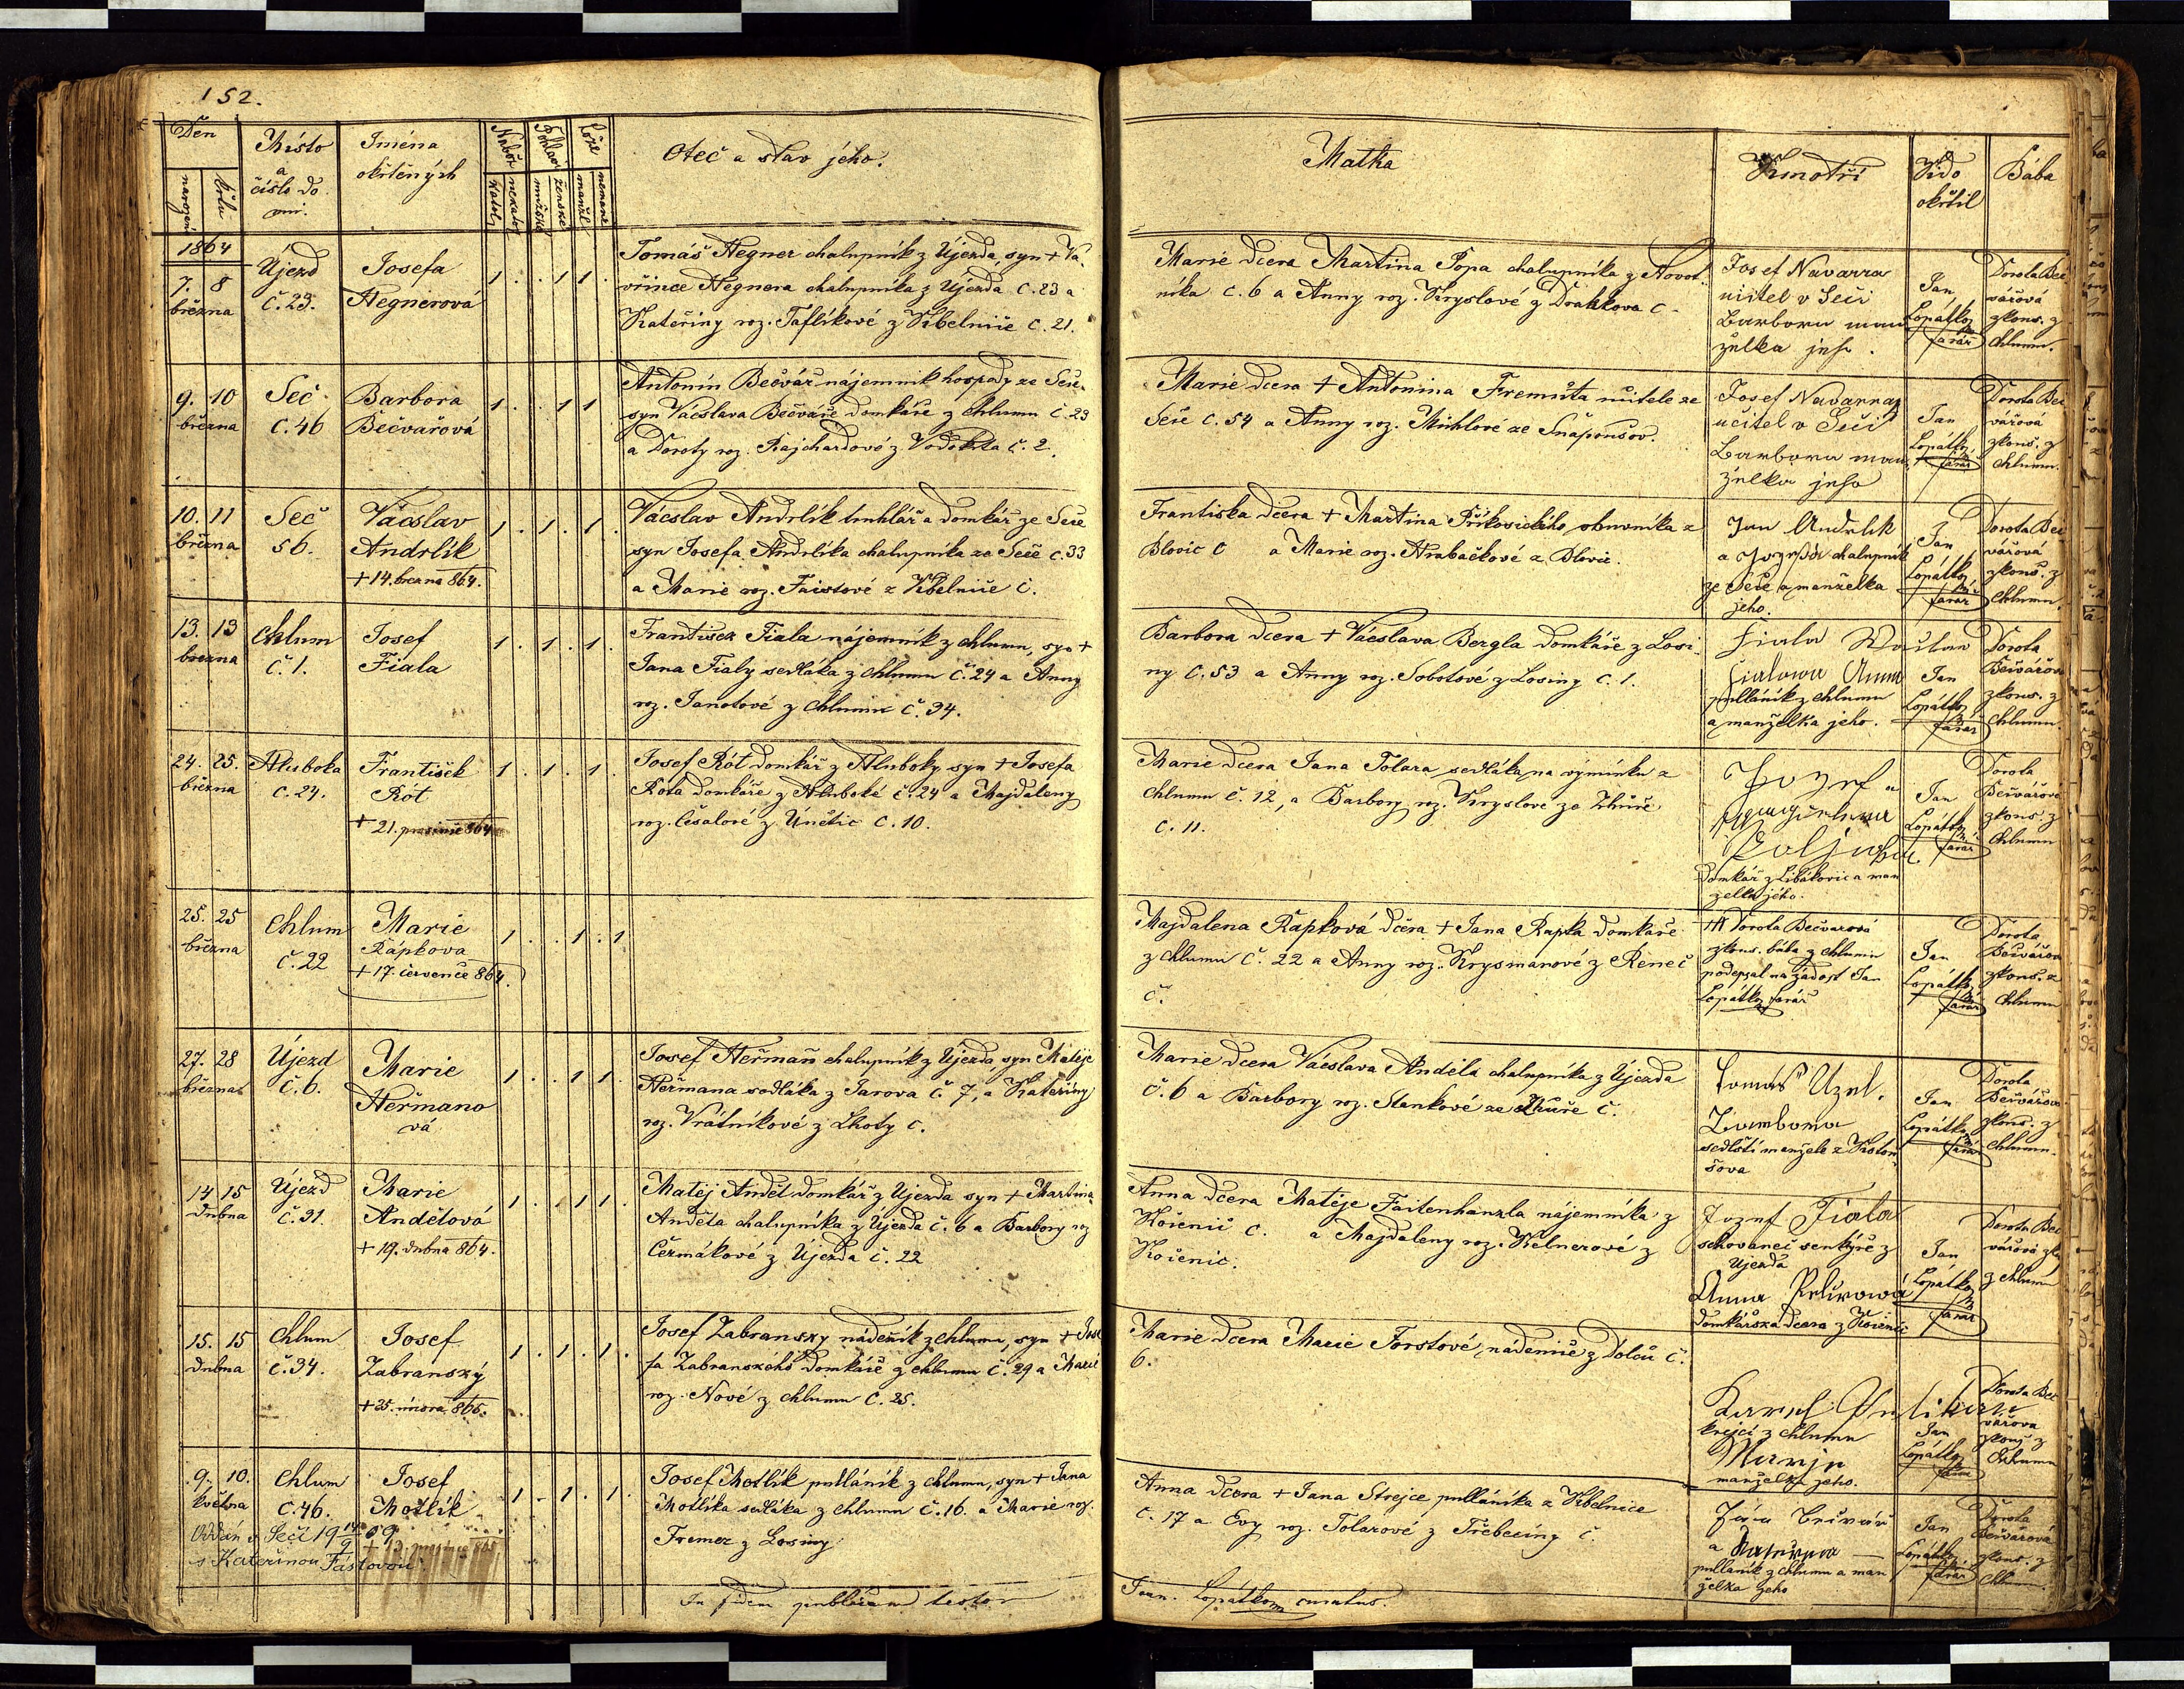 152.
Den
narození
křtu
Místo
a
číslo do
mu.
Jména
okřtěných
Nábož
katol.
nekatol
Pohlaví
mužské
ženské
Lože
manžel
nemanž
Otec a stav jeho.
Matka
Kmotři
Kdo
okřtil
Bába
1864
7. 8
března
Újezd
č. 23.
Josefa
Hegnerová
1 . . 1 1 .
Tomáš Hegner chalupník z Újezda, syn + Va
vřince Hegnera chalupníka z Újezda č. 23 a
Kateřiny roz. Taflíkové z Kbelnice č. 21.
Marie dcera Martina Popa chalupníka z Novot
níka č. 6 a Anny roz. Kryslové z Drahkova č
Josef Navarra
učitel v Seči
Barbora man
želka jeho.
Jan
Lopátka
farář
Dorota Beč
vářová
zkouš. z
Chlumu.
9. 10
března
Seč
č. 46
Barbora
Bečvářová
1 . . 1 1
Antonín Bečvář nájemník hospody ze Seče
syn Vácslava Bečváře domkáře z Chlumu č. 23
a Doroty roz. Rajchardové z Vodokrta č. 2.
Marie dcera + Antonína Fremuta učitele ze
Seče č. 54 a Anny roz. Michlové ze Snopoušov.
Josef Navarra
učitel v Seči
Barbora man
želka jeho
Jan
Lopátka
farář
Dorota Beč
vářová
zkouš. z
Chlumu.
10. 11
března
Seč
56.
Vácslav
Andrlík
+ 14. března 864.
1 . 1 . 1 .
Vácslav Andrlík truhlář a domkář ze Seče
syn Josefa Andrlíka chalupníka ze Seče č. 33
a Marie roz. Faistové z Kbelnice č.
Františka dcera + Martina obuvníka z
Blovic č a Marie roz. Hrabačkové z Blovic.
Jan Andrlik
a chalupník
ze Seče a manželka
jeho.
Jan
Lopátka
farář
Dorota Beč
vářová
zkouš. z
Chlumu.
13. 13
března
Chlum
č. 1.
Josef
Fiala
1 . 1 . 1 .
František Fiala nájemník z Chlumu, syn +
Jana Fialy sedláka z Chlumu č. 24 a Anny
roz. Janotové z Chlumu č. 34.
Barbora dcera + Vácslava Bergla domkáře z Losi
ny č. 53 a Anny roz. Sobotové z Losiny č. 1.
Fiala Wactaw
Fialowa Anna
pulláník z Chlumu
a manželka jeho.
Jan
Lopátka
farář
Dorota
Bečvářov
zkouš. z
Chlumu.
24. 25.
března
Hluboka
č. 24.
František
Rót
+ 21. prosince 864
1 . 1 . 1 .
Josef Rót domkář z Hluboky syn + Josefa
Róta domkáře z Hluboké č. 24 a Majdaleny
roz. Česalové z Únětic č. 10.
Marie dcera Jana Tolara sedláka na výminku z
Chlumu č. 12, a Barbory roz. Kryslové ze Zhůře
č. 11.
Jozef a
domkář z Libákovic a man
želka jeho.
Jan
Lopátka
farář
Dorota
Bečvářová
zkouš. z
Chlumu
25. 25
března
Chlum
č. 22
Marie
Rápkova
+ 17. července 864.
1 . . 1 . 1
Majdalena Rapková dcera + Jana Rapka domkáře
z Chlumu č. 22 a Anny roz. Krysmanové z Renec
č.
Dorota Bečvarová
zkouš. bába z Chlumu
podepsal na žádost Jan
Lopátka farář
Jan
Lopátka
farář
Dorota
Bečvářov
zkouš. z
Chlumu
27. 28
března
Újezd
č. 6.
Marie
Heřmano
vá
1 . . 1 1
Josef Heřman chalupník z Újezda, syn Matěje
Heřmana sedláka z Jarova č. 7, a Kateřiny
roz. Vrátníkové z Lhoty č.
Marie dcera Vácslava Anděla chalupníka z Újezda
č. 6 a Barbory roz. Stankové ze Zhuře č.
Tomáš Uzel.
sedlští manželé z Koton
šova
Jan
Lopátka
farář
Dorota
Bečvářov
zkouš. z
Chlumu.
14 15
dubna
Újezd
č. 31.
Marie
Andělová
+ 19. dubna 864.
1 . . 1 1 .
Matěj Anděl domkář z Újezda syn + Martina
Anděla chalupníka z Újezda č. 6 a Barbory roz
Čermákové z Újezda č. 22
Anna dcera Matěje Faitenhanzla nájemníka z
Kořenic č. a Majdaleny roz. Kelnerové z
Kořenic.
Jozef Fiala
schovanec šenkýře z
Ujezda
Anna
domkářská dcera z Kořenic
Jan
Lopátka
farář
Dorota Beč
vářová zk
z Chlumu
15. 15
dubna
Chlum
č. 34.
Josef
Zabranský
+ 25. února 865.
1 . 1 . 1 .
Josef Zabranský nádeník z Chlumu, syn + Jose
fa Zabranského domkáře z Chlumu č. 29 a Marie
roz. Nové z Chlumu č. 25.
Marie dcera Marie Forstové, nádenice z Dolců č.
6.
Karel
krejčí z Chlumu
Marije
manželka jeho.
Jan
Lopátka
farář
Dorota Beč
vářova
zkouš z
Chlumu
9. 10.
května
Chlum
č. 46.
Josef
Motlík
1 . 1 . 1 .
Josef Motlík pulláník z Chlumu, syn + Jana
Motlíka sedláka z Chlumu č. 16. a Marie roz.
Fremer z Losiny
Anna dcera + Jana Strejce pulláníka z Kbelnice
č. 17 a Evy roz. Tolarové z Třebeciny č.
Bečvář
a Kateřina
pulláník z Chlumu a man
želka jeho
Jan
Lopátka
farář
Dorota
Bečvářová
zkouš. z
Chlum.
Oddán v Seči 19 14/9 09
s Kateřinou Fástovou
In fidem publicam testor
Joan. Lopátka curatus.